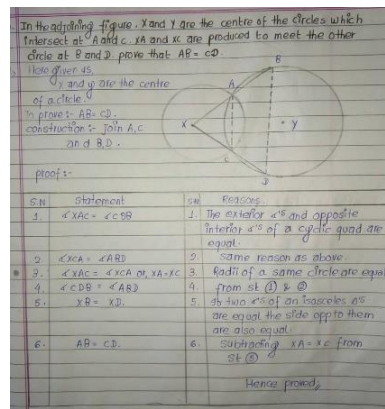 In the adjoining figure, X and Y are the centre of the circles which
intersect at A and C. XA and XC are produced to meet the other
circle at B and D. prove that AB = CD.
Here given us,
X and Y are the centre
of a circle.
To prove :- AB = CD.
construction :- Join A, C
and B, D.
A
B
X
Y
C
D
proof :-
S.N Statement S.N Reasons
1. ∠XAC = ∠CDB 1. The exterior ∠'s and opposite
interior ∠'s of a cyclic quad are
equal.
2. ∠XCA = ∠ABD 2. same reason as above.
3. ∠XAC = ∠XCA or, XA = XC 3. Radii of a same circle are equal
4. ∠CDB = ∠ABD 4. from st ① & ②
5. XB = XD. 5. If two ∠'s of an isosceles
are equal the side opp to them
are also equal
6. AB = CD. 6. Subtracting XA = XC from
st ⑤
Hence proved,